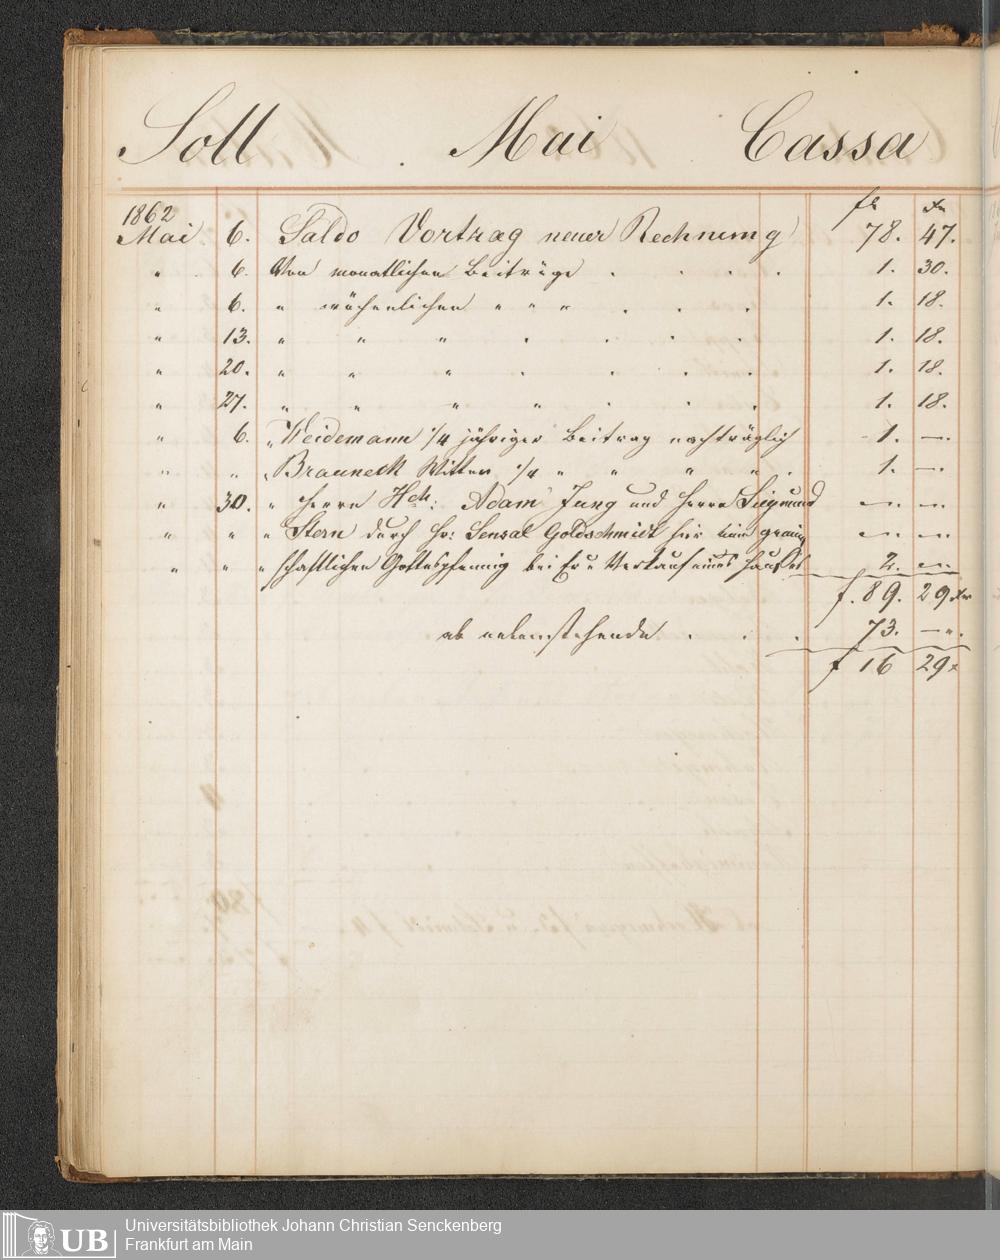 Soll Mai Cassa
1862 fl xr
Mai 6. Saldo Vortrag neuer Rechnung 78. 47.
" 6. Von monatlichen Beiträge . . . . 1. 30.
" 6. " wöchenlichen " " " . . . 1. 18.
" 13. " " " . . . . 1. 18.
" 20. " " " . . . . 1. 18.
" 27. " " " " . . . 1. 18.
" 6. " Weidemann 1/4 jähriger Beitrag nachträglich 1. —.
" " " Brauneck Witwe 1/4 " " " " . 1. —.
" 30. " Herrn Hch: Adam Jung und Herrn Siegmund —. —.
" " " Stern durch Hr: Sensal Goldschmidt für —. —.
" " " schaftlichen Gottespfennig bei Verkauf eines Hauses 2. —.
f. 89. 29 xr
ab nebenstehende . . . 73. —.
f 16 29 x
Universitätsbibliothek Johann Christian Senckenberg
Frankfurt am Main
UB